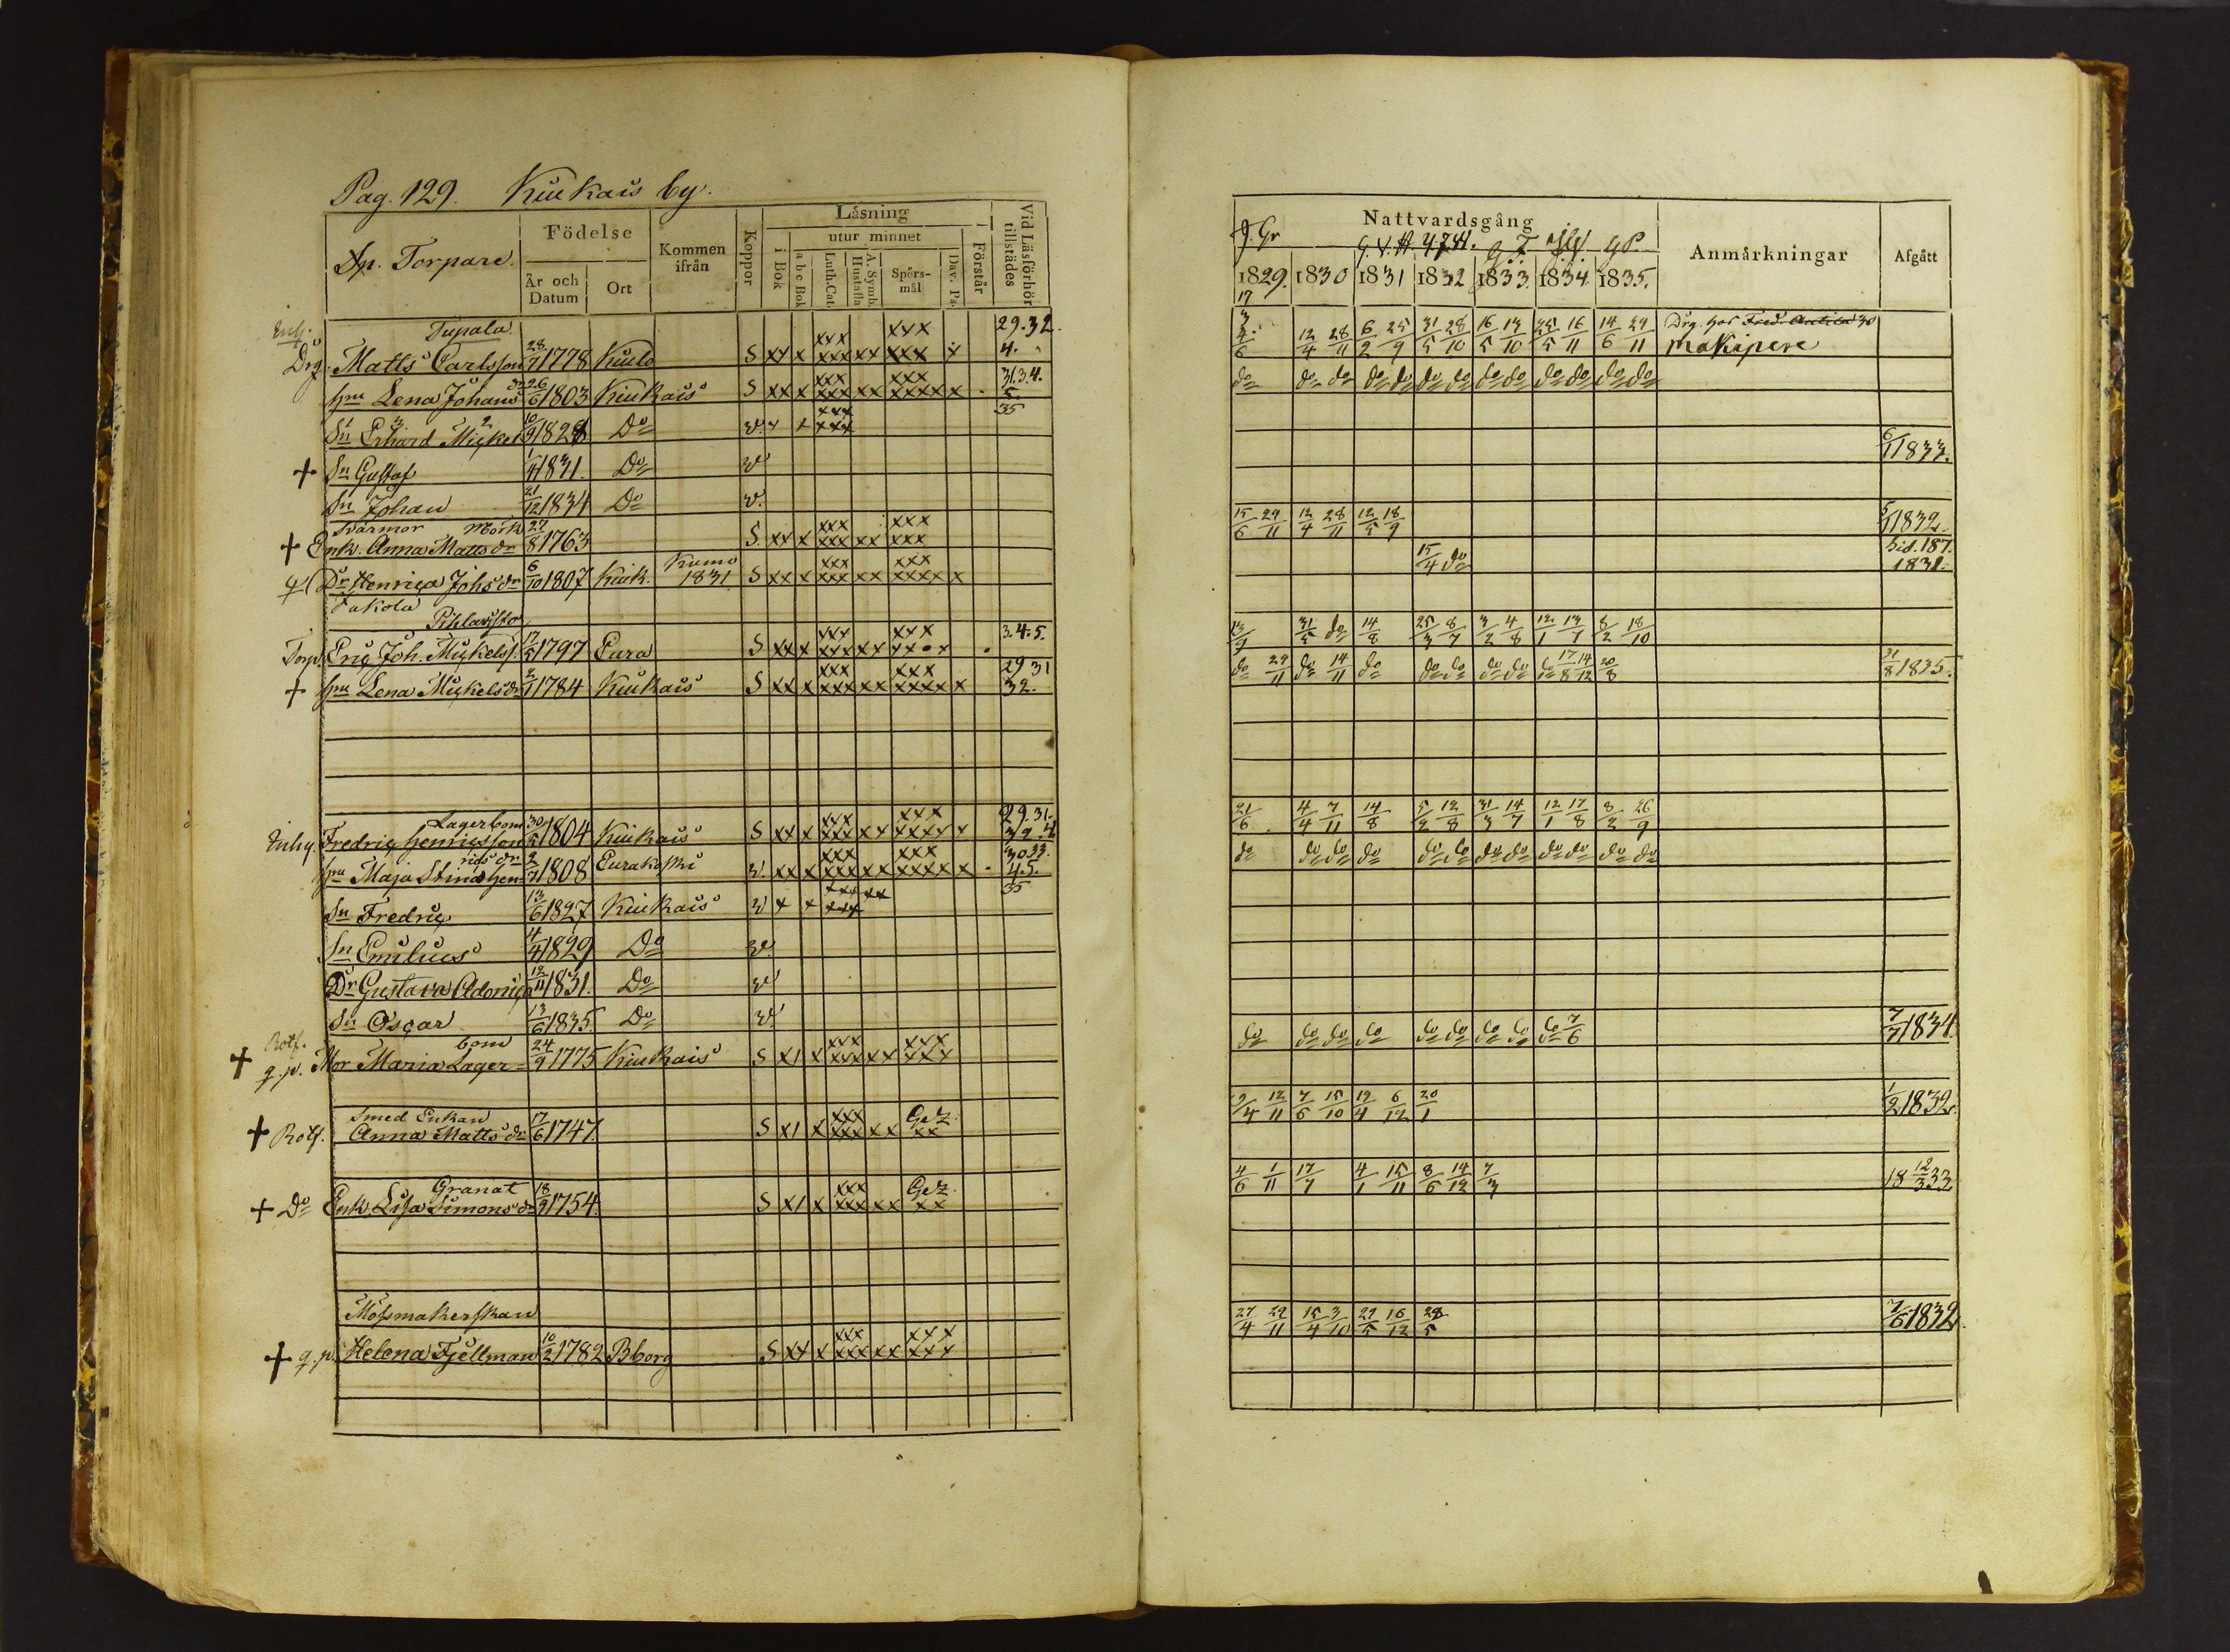 Pag. 129. Kiukais by.
Torpare.
Födelse
År och Datum
Ort
Kommen ifrån
Koppor
Låsning
i Bok
utur minnet
a b c Bok
Luth. Cat.
A. Symb. Hustafla
Spörs-mål
Dav. Ps.
Förstår
Vid Läsförhör tillstädes
Inh. Tupala 29.32.
Drg. Matts Carlsson 28/7 1778 Kiulo S xx x xxx xxx xx xxx xxx x 4.
hu Lena Johans dr 26/6 1803 Kiukais S xx x xxx xxx xx xxx xxxx x 31.3.4. 5.
Sn Erhard Mickel 10/9 1828 Do v. x x xxx xxx 35
+ Sn Gustaf 1/4 1831. Do v
Sn Johan 21/12 1834 Do v.
Svärmor Mörk
+ Enk. Anna Matts dr 27/8 1763 S. xx x xxx xxx xx xxx xxx
Dr Henrica Johs dr 6/10 1807 Kiuk. Kumo 1831 S xx x xxx xxx xx xxx xxxx x
Jakola
Torp. Eric Joh. Mickelss. 17/5 1797 Eura S xx x xxx xxx xx xxx 3.4.5.
+ hu Lena Mickels dr 1784 Kiukais S xx x xxx xxx xx xxx xxxx x 29 31 32.
Lagerbom
Inhy. Fredric Henricsson 30/5 1804 Kiukais S xx x xxx xxx xx xxx xxxx x 29.31.
hu Maja Stina Hen= rics dr 2/7 1808 Eurakoski v. xx x xxx xxx xx xxx xxxx x 30.33. 4.5.
Sn Fredric 13/6 1827 Kiukais v x x xxx xxx xx 35
Sn Emilius 4/4 1829 Do v.
Dr Gustava Adonica 12/11 1831. Do v
Sn Oscar 13/6 1835. Do v.
Rotf. bom
+ q.p. Mor Maria Lager= 24/9 1775 Kiukais S x1 x xxx xxx xx xxx xxx
Smed Enkan
+ Rotf. Anna Matts dr 17/6 1747. S x1 x xxx xxx xx Gez. xx
Granat
+ Do Enk. Lisa Simons dr 18/9 1754. S x1 x xxx xxx xx Gez. xx
Mössmakerskan
+ q.p. Helena Fjellman 10/2 1782 Bborg S xx x xxx xxx xx xxx xxx
Nattvardsgång
Anmårkningar
Afgått
1829. 1830 1831 1832 1833. 1834. 1835.
12/4 28/11 6/2 25/9 31/5 28/10 16/5 13/10 25/5 16/11 14/6 29/11 Drg. hos Fred. Anttila 30
Makipere
do do do do do do do do do do do do do
6/1 1833.
15/6 29/11 12/4 28/11 12/5 18/9 1832.
15/4 do Sid. 187. 1831.
13/9 31/5 do 14/8 25/3 8/7 3/2 4/8 12/1 13/7 8/2 18/10
do 29/11 do 14/11 do do do do do do 17/8 14/12 20/8 31/8 1835.
21/6 4/4 7/11 14/8 5/2 12/8 31/3 14/7 12/1 17/8 8/2 26/9
do do do do do do do do do do do do
do do do do do do do do do 7/6 7/7 1834.
9/4 12/11 7/6 15/10 19/4 6/12 20/1 1/2 1832.
4/6 1/11 17/7 4/1 15/11 8/6 14/12 7/3 18 12/3 33.
27/4 29/11 15/4 3/10 29/5 16/12 28/5 7/6 1832.